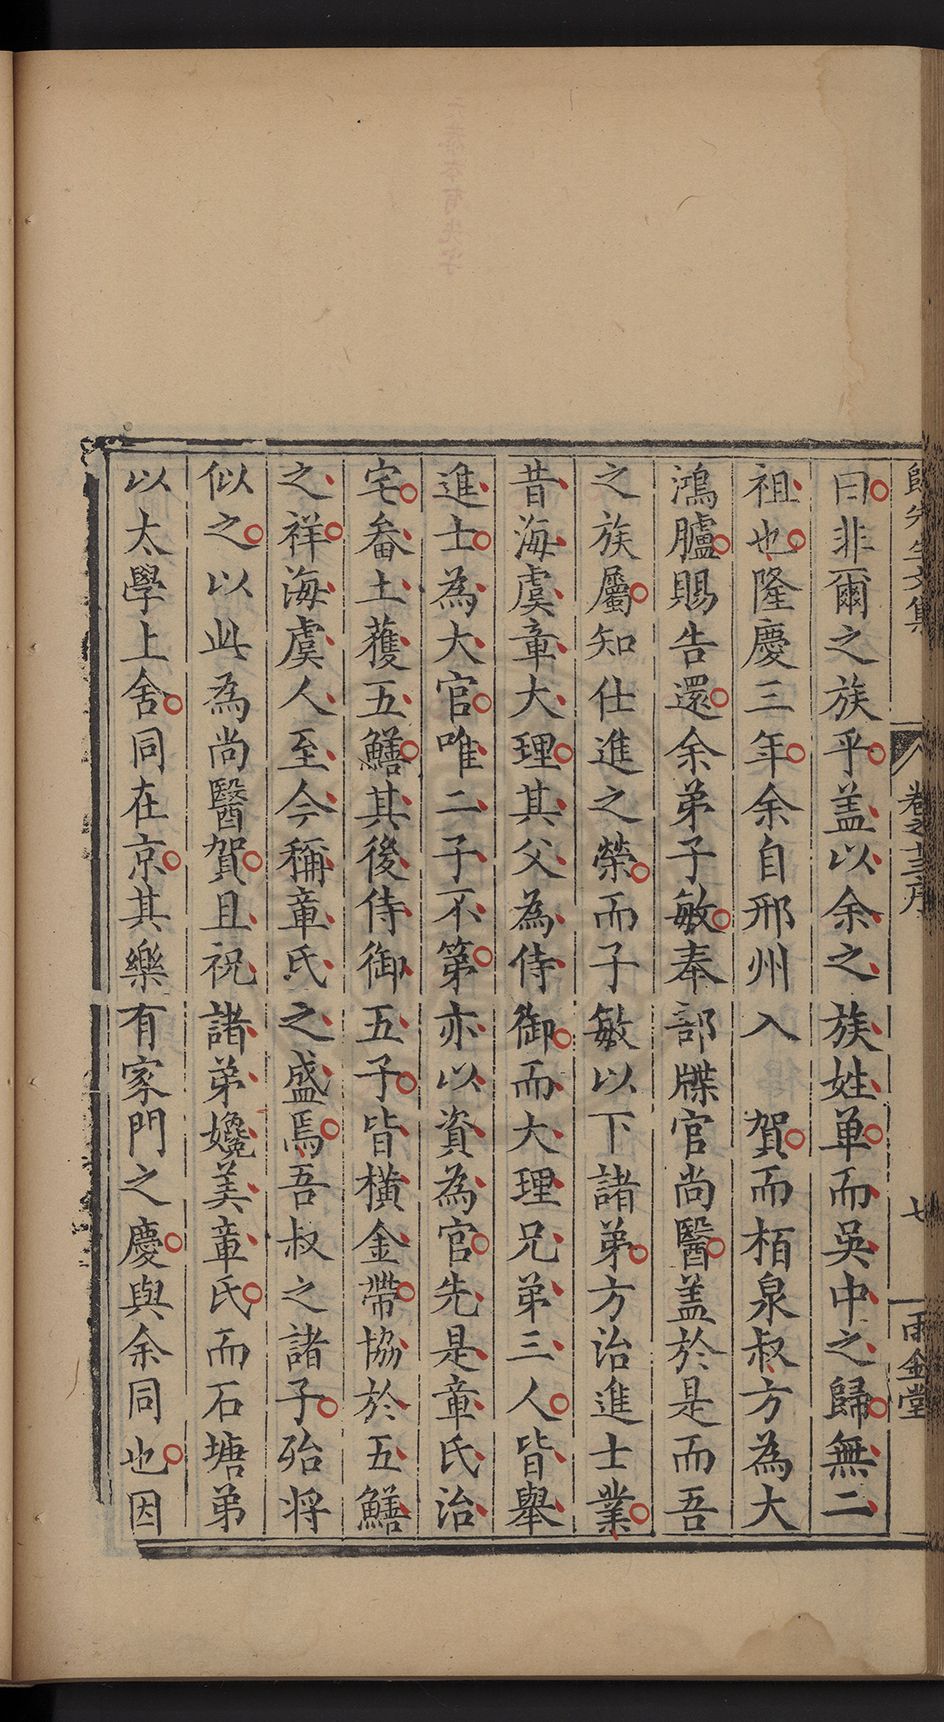 歸先生文集　卷之十三序　七　雨金堂
曰非爾之族乎盖以余之族姓单而吳中之歸無二
祖也隆慶三年余自邢州入　賀而栢泉叔方為大
鴻臚賜告還余弟子敏奉部牒官尚醫盖於是而吾
之族屬知仕進之榮而子敏以下諸弟方治進士業
昔海虞章大理其父為侍御而大理兄弟三人皆舉
進士為大官唯二子不第亦以資為官先是章氏治
宅畚土蒦五鱔其後侍御五子皆橫金帶協於五鱔
之祥海虞人至今稱章氏之盛焉吾叔之諸子殆将
似之以此為尚醫賀且祝諸弟媲美章氏而石塘弟
以太學上舍同在京其樂有家門之慶與余同也因